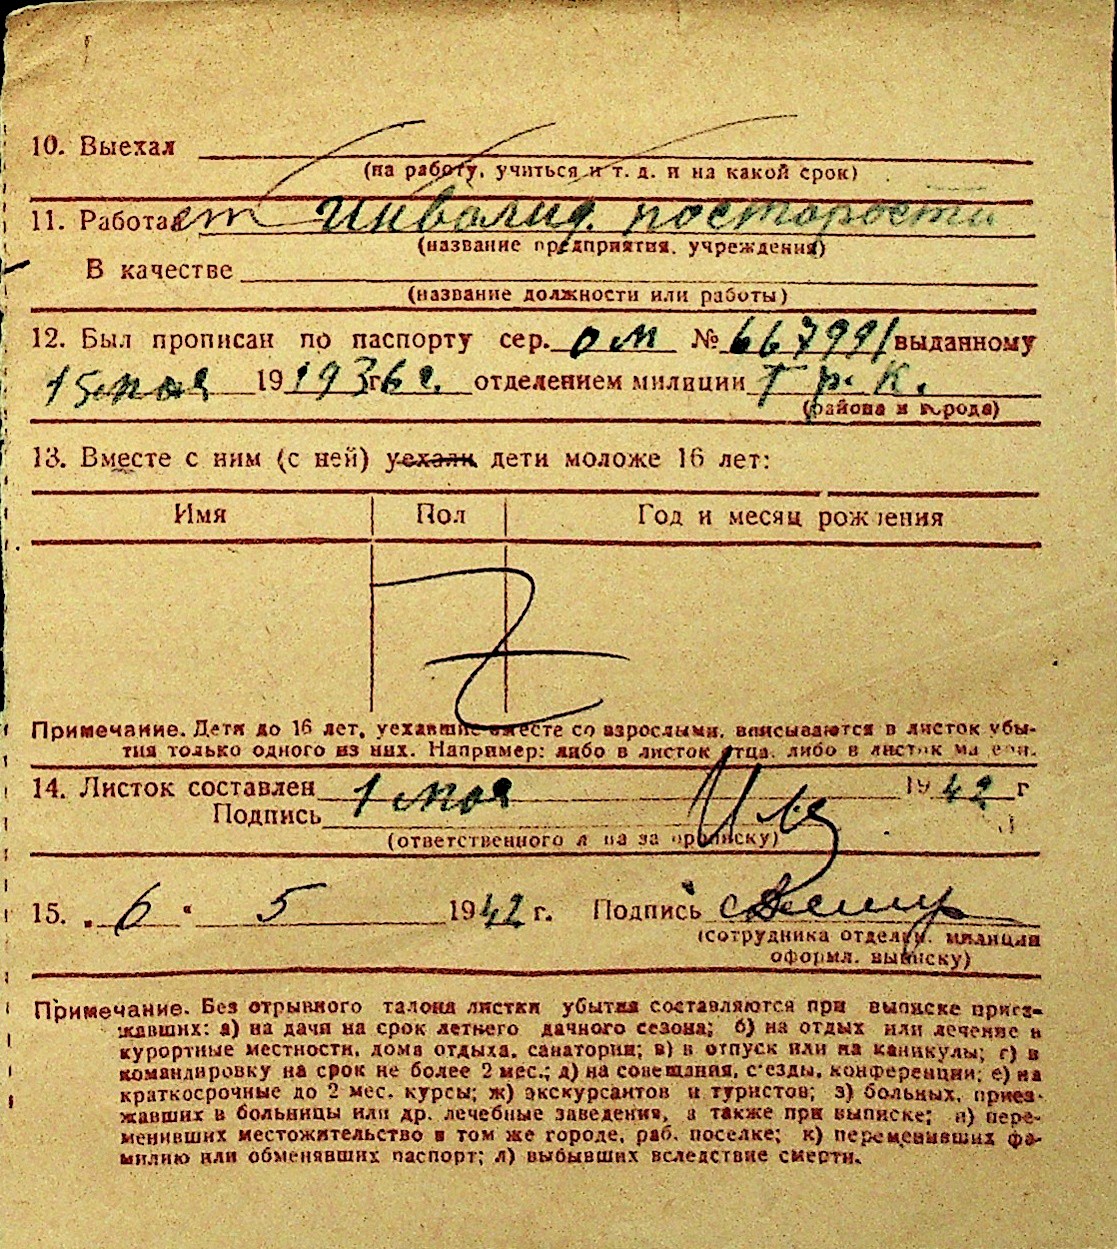 10. Выехал
(на работу, учиться и т. д. и на какой срок)
11. Работает Инвалид. постарости
(название предприятия, учреждения)
В качестве
(название должности или работы)
12. Был прописан по паспорту сер. ОМ № 667991 выданному
15 мая 19 1936 г. отделением милиции Г р. К.
(района и города)
13. Вместе с ним (с ней) уехали дети моложе 16 лет:
Имя Пол Год и месяц рождения
Z
Примечание. Дети до 16 лет, уехавшие вместе со взрослыми, вписываются в листок убы-
тия только одного из них. Например: либо в листок отца, либо в листок матери.
14. Листок составлен 1 мая 1942 г
Подпись
(ответственного лица за прописку)
15. „ 6 “ 5 1942 г. Подпись
(сотрудника отделен. милиции
оформл. выписку)
Примечание. Без отрывного талона листки убытия составляются при выписке приез-
жавших: а) на дачи на срок летнего дачного сезона; б) на отдых или лечение в
курортные местности, дома отдыха, санатории; в) в отпуск или на каникулы; г) в
командировку на срок не более 2 мес.; д) на совещания, с'езды, конференции; е) на
краткосрочные до 2 мес. курсы; ж) экскурсантов и туристов; з) больных, приез-
жавших в больницы или др. лечебные заведения, а также при выписке; и) пере-
менивших местожительство в том же городе, раб. поселке; к) переменивших фа-
милию или обменявших паспорт; л) выбывших вследствие смерти.